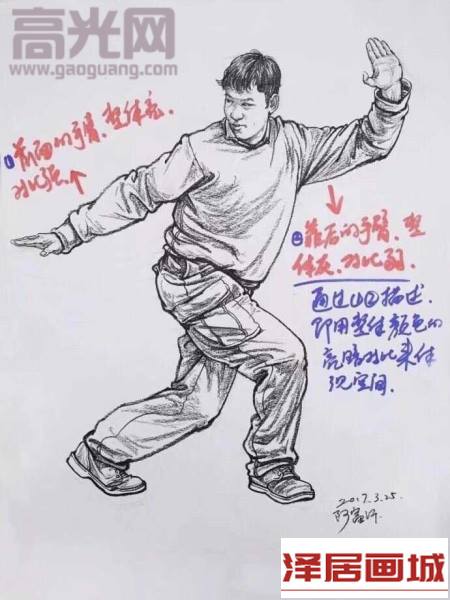 高光网
www.gaoguang.com
①前面的手臂、整体亮.
对比强.
②靠后的手臂、整
体灰、对比弱.
通过①②描述.
即用整体颜色的
亮暗对比来体
现空间.
2017.3.25.
泽居画城